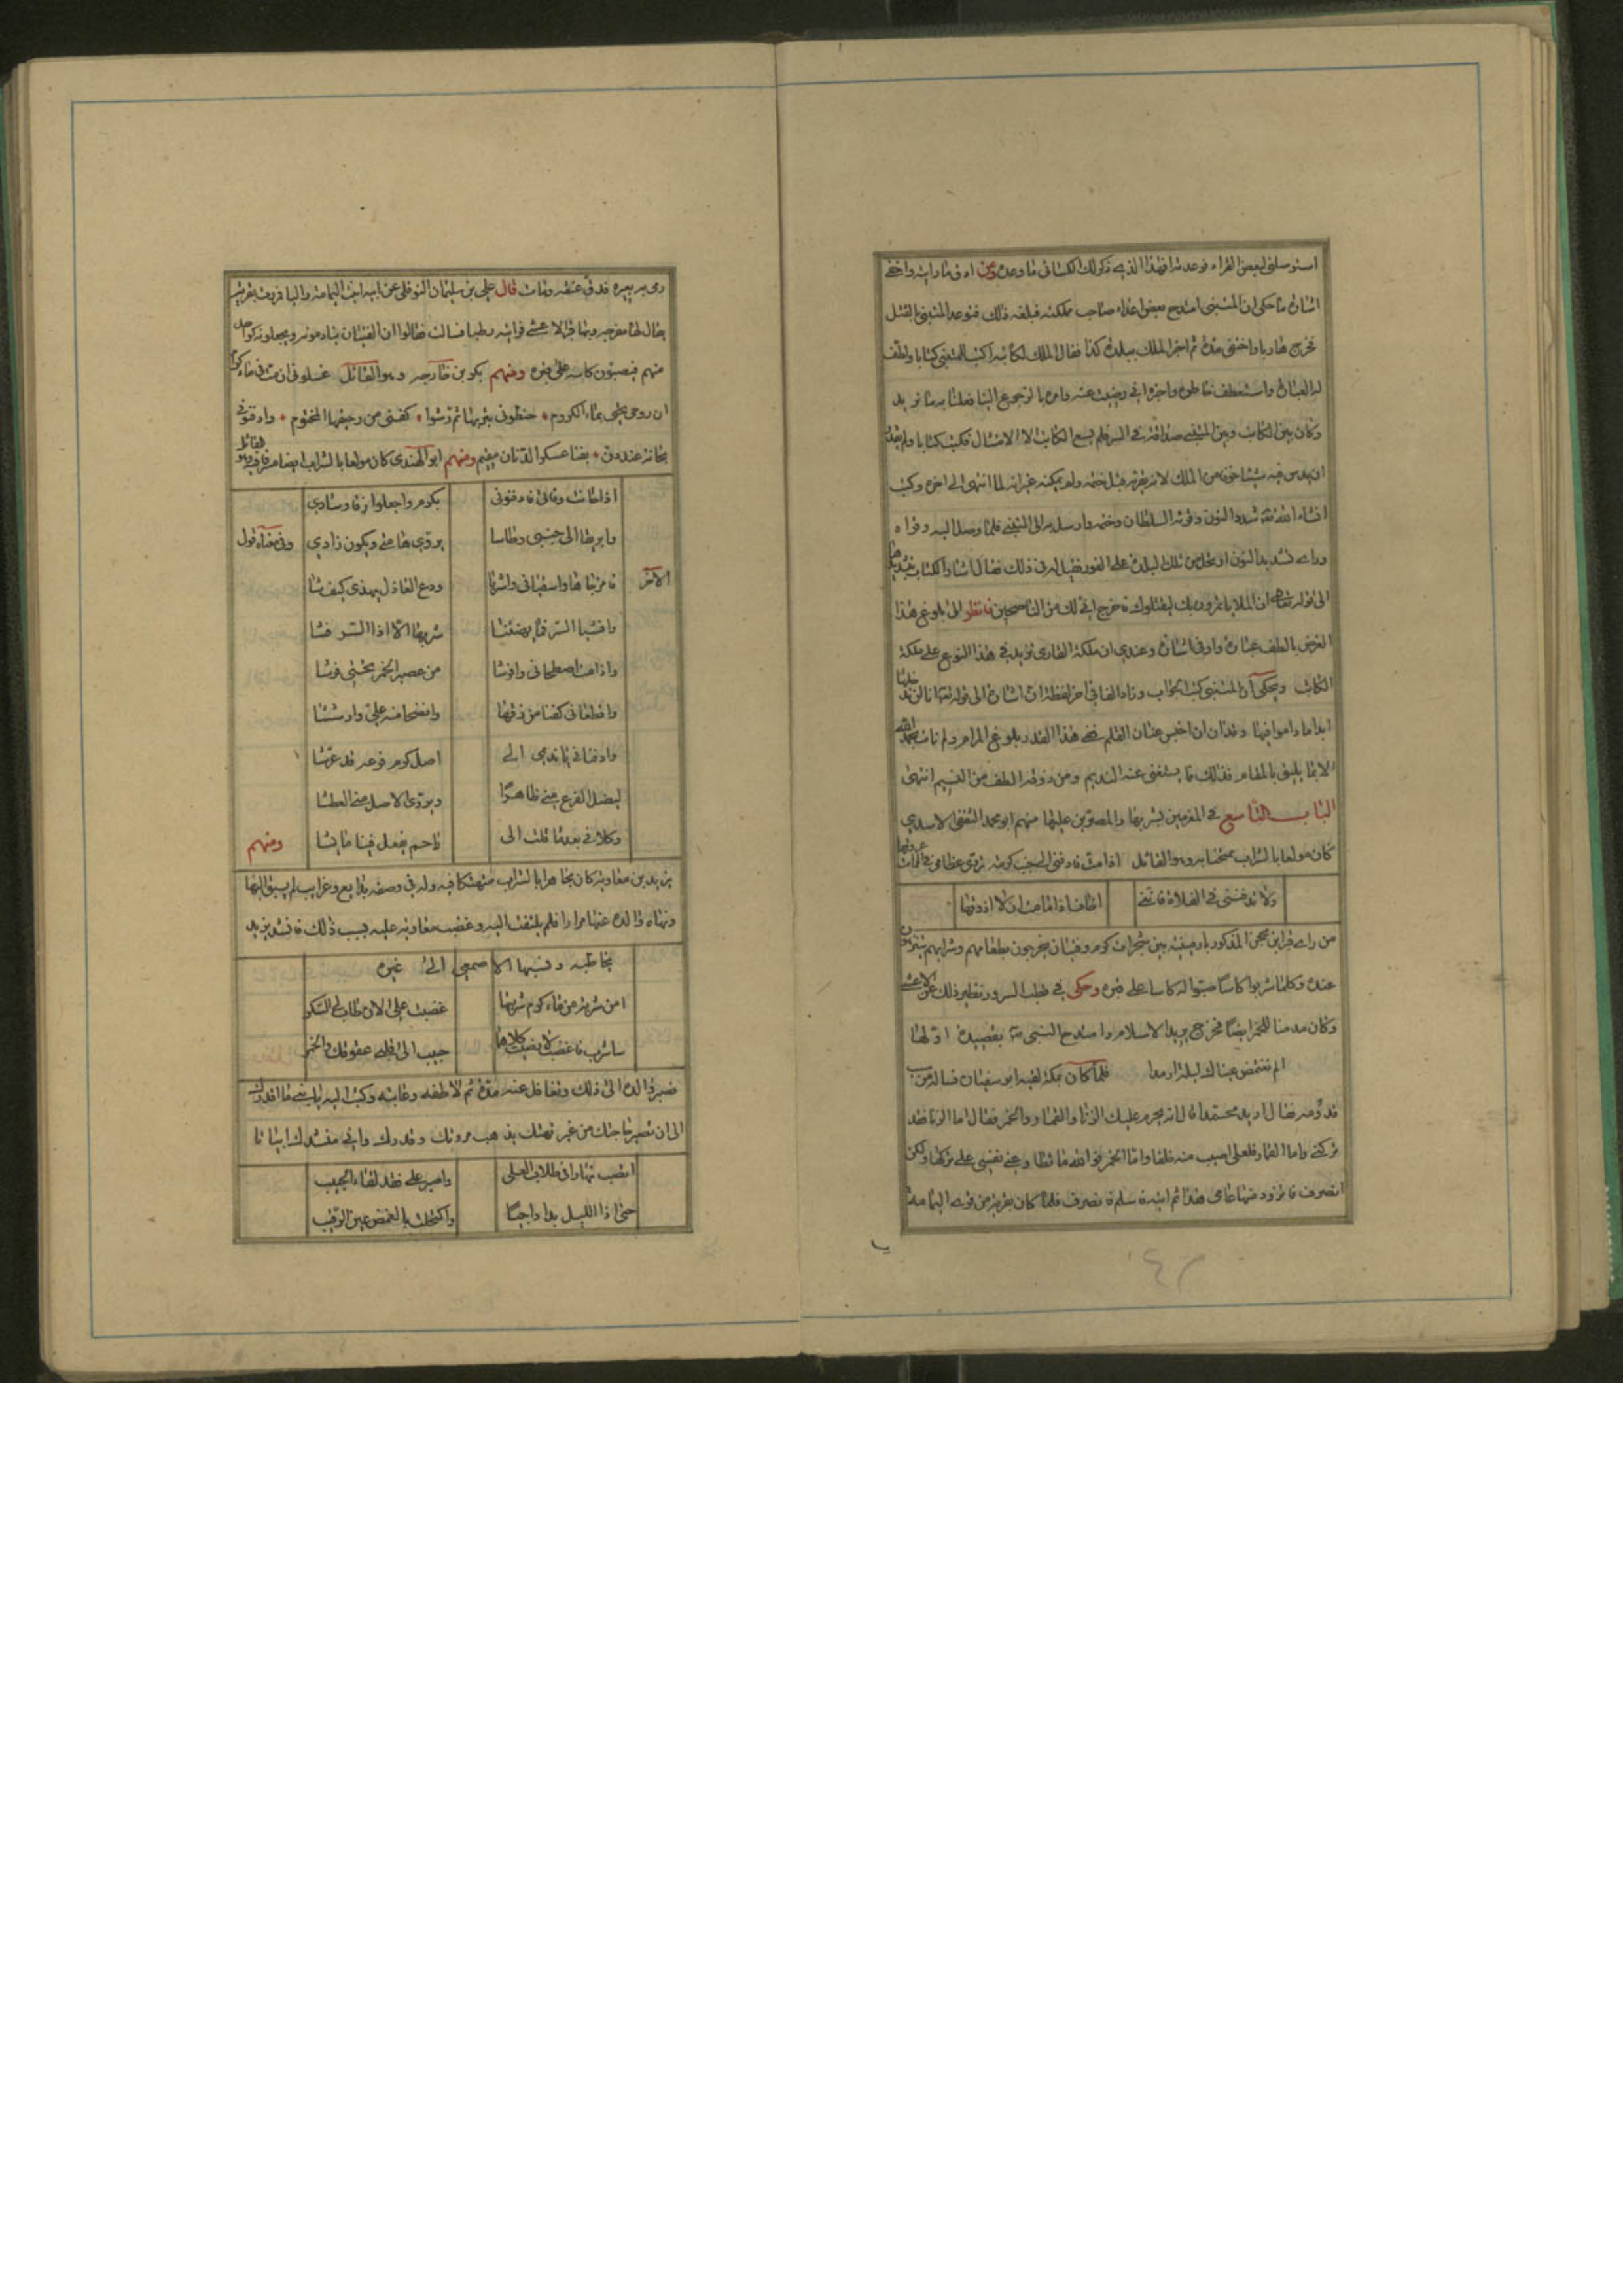 اشارة ما حكى ان المتنبى امتدح بعض اعداء صاحب مملكته فبلغه ذلك فتوعد المتنبى بالقتل
فخرج هاربا واختفى مدة ثم اخبر الملك ببلدة كذا فقال الملك لكاتبه اكتب للمتنبى كتابا ولطف
له العبارة واستعطف خاطره واخبره انى رضيت عنه وامره بالرجوع الينا فعلنا به ما نريد
وكان بين الكاتب وبين المتنبى صداقة فى السر فلم يسع الكاتب الا الامتثال فكتب كتابا ولم
ان يدس فيه شيئا خوفا من الملك لانه يقرؤه قبل ختمه ولم يمكنه غير انه لما انتهى الى اخره وكتب
انشاء الله تعالى شدد النون وقرئه السلطان وختمه وارسل به الى المتنبى فلما وصل اليه وقراه
وراى تشديد النون ارتحل من تلك البلدة على الفور فقيل له فى ذلك فقال اشار الكتاب بتشديد
الى قوله تعالى ان الملأ يأتمرون بك ليقتلوك فاخرج انى لك من الناصحين فانظر الى بلوغ هذا
الغرض بالطف عبارة وادق اشارة وعندي ان ملكة القارى تزيد فى هذا النوع على ملكة
الكاتب ويحكى ان المتنبى كتب الجواب وزاد الفا فى اخر لفظة ان اشارة الى قوله تعالى انا لن ندخلها
ابدا ما داموا فيها وقد ان ان احبس عنان القلم ففى هذا القدر بلوغ المرام ولم نات بحمد الله
الا بما يليق بالمقام فذلك ما يستغنى عنه النديم ومن ذوقه الطف من النسيم انتهى
الباب التاسع فى المغرمين بشربها والمصرين عليها منهم ابو محمد الثقفى الاسدي
كان مولعا بالشراب وهو القائل اذا مت فادفنى الى جنب كرمة تروى عظامى فى الممات عروقها
ولا تدفننى فى الفلاة فاننى اخاف اذا ما مت ان لا اذوقها
من راى قبر ابن محجن المذكور بارمينية بين شجرات كرم وفتيان يخرجون بطعامهم وشرابهم يتنزهون
عنده وكلما شربوا كاسا صبوا له كاسا على قبره وحكى فى قطب السرور نظير ذلك عن الاعشى
وكان مدمنا للخمر ايضا فخرج يريد الاسلام وامتدح النبى بقصيدة اولها
الم تغتمض عيناك ليلة ارمدا فلما كان بمكة لقيه ابو سفيان فساله عن سبب
قدومه فقال اريد محمدا قال انه يحرم عليك الزنا والقمار والخمر فقال اما الزنا فقد
تركنى واما القمار فلعلى اصيب منه خلفا واما الخمر فوالله ما تطاوعنى نفسى على تركها ولكن
انصرف فاتزود منها عامى هذا ثم اتيه فاسلم فانصرف فلما كان بقرية من قرى اليمامة
رمى به بعيره فدق عنقه ومات قال على بن سليمان النوفلى عن ابيه اتيت اليمامة واليا فمررت بقرية
يقال لها منفوحة وبها قبر الاعشى فرايته رطبا فسالت فقالوا ان الفتيان ينادمونه ويجعلونه كواحد
منهم فيصبون كاسه على قبره ومنهم بكر بن خارجه وهو القائل غسلونى ان مت فى ماء كرم
ان روحى تحيى بماء الكروم • حنطونى بتربها ثم رشوا • كفنى من رحيقها المختوم • وادفنونى
بحانة عند دن • بفنا عسكر الدنان مقيم ومنهم ابو الهندى كان مولعا بالشراب ايضا وهو القائل
اذا حانت وفاتى فادفنونى بكرم واجعلوا زقا وسادي
وابريقا الى جنبى وطاسا يروى هامتى ويكون زادي وفى معناه قول
الاخر فامزجاها واسقيانى واشربا ودع العاذل يهذى كيف شا
وافشيا السر فما يعجبنا شربها الا اذا السر فشا
وادفنانى يا نديمى الى اصل كرم فرعه قد عرشا
ليظل الفرع منى ظاهرا ويروى الاصل منى العطشا
وكلانى بعدما قلت الى راحم يفعل فينا ما يشا ومنهم
يزيد بن معاوية كان مجاهرا بالشراب متهتكا فيه وله فى وصفه بدايع وغرايب لم يسبق اليها
ونهاه والده عنها مرارا فلم يلتفت اليه وغضب معاوية عليه بسبب ذلك فانشد يزيد
يخاطبه ونسبها الاصمعى الى غيره
امن شربة من ماء كرم شربتها غضبت على الان طاب لى السكر
ساشرب فاغضب لا رضيت كلاهما حبيب الى قلبى عقوقك والخمر
فصبر والده الى ذلك وتغافل عنه مدة ثم لاطفه وعاتبه وكتب اليه يا بنى ما اقدرك
الى ان تصير حاجتك من غير تهتك يذهب مروتك وقدرك وانى منشدك ابياتا
انصب نهارا فى طلاب العلى واصبر على فقد لقاء الحبيب
حتى اذا الليل بدا داجيا واكتحلت بالغمض عين الرقيب